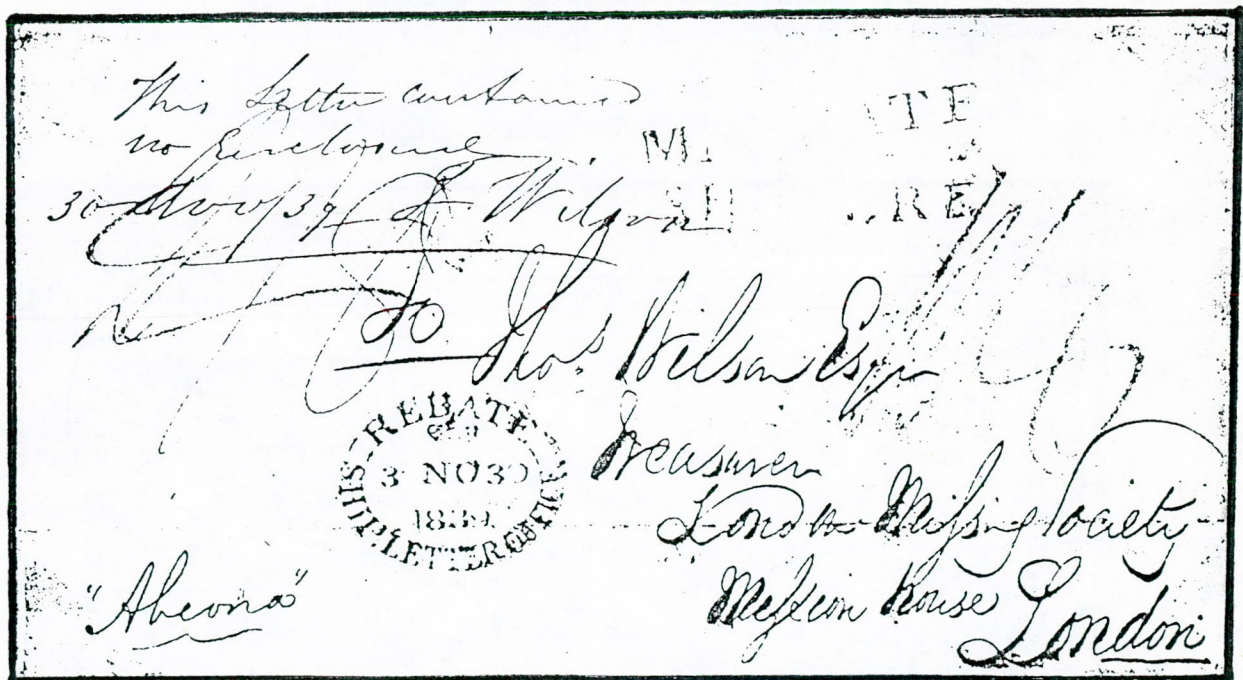 This Letter contained
no Enclosure
30 Nov/39 Wilson
20
Thos. Wilson Esqr
Treasurer
London Missing Society
Mission house
London
REBATE
3 NO 30
1839
SHIP LETTER OFFICE
"Abeona"